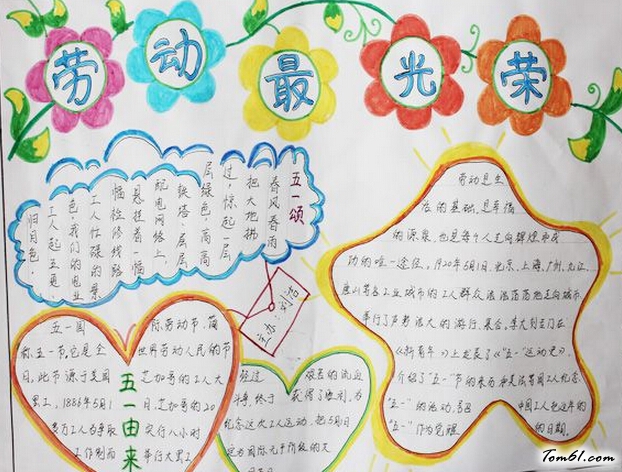 劳动最光荣
五一颂
春风春雨
把大地拂
过，惊起一层
层绿色，高高
铁塔，层层
配电网络上，
悬挂着一幅
幅检修线路
工人忙碌的景
色，我们的电业
工人起五更，
归月色。
主办：刘洁
劳动是生
存的基础，是幸福
的源泉，也是每个人走向辉煌和成
功的唯一途径。1920年5月1日，北京、上海、广州、九江、
唐山等各工业城市的工人群众浩浩荡荡地走向城市、
举行了声势浩大的游行、集会。李大钊专门在
《新青年》上发表了《"五一"运动史》，
介绍了"五一"节的来历和美法等国工人纪念
"五一"的活动，号召 中国工人把这年的
"五一"作为觉醒 的日期。
五一由来
五一国 际劳动节，简
称五一节，它是全 世界劳动人民的节
日。此节源于美国 芝加哥的工人大
罢工，1886年5月1 日，芝加哥的20
多万工人为争取 实行八小时
工作制而 举行大罢工
经过 艰苦的流血
斗争，终于 获得了胜利。为
纪念这次工人运动，把5月1日
定为国际
Tom61.com